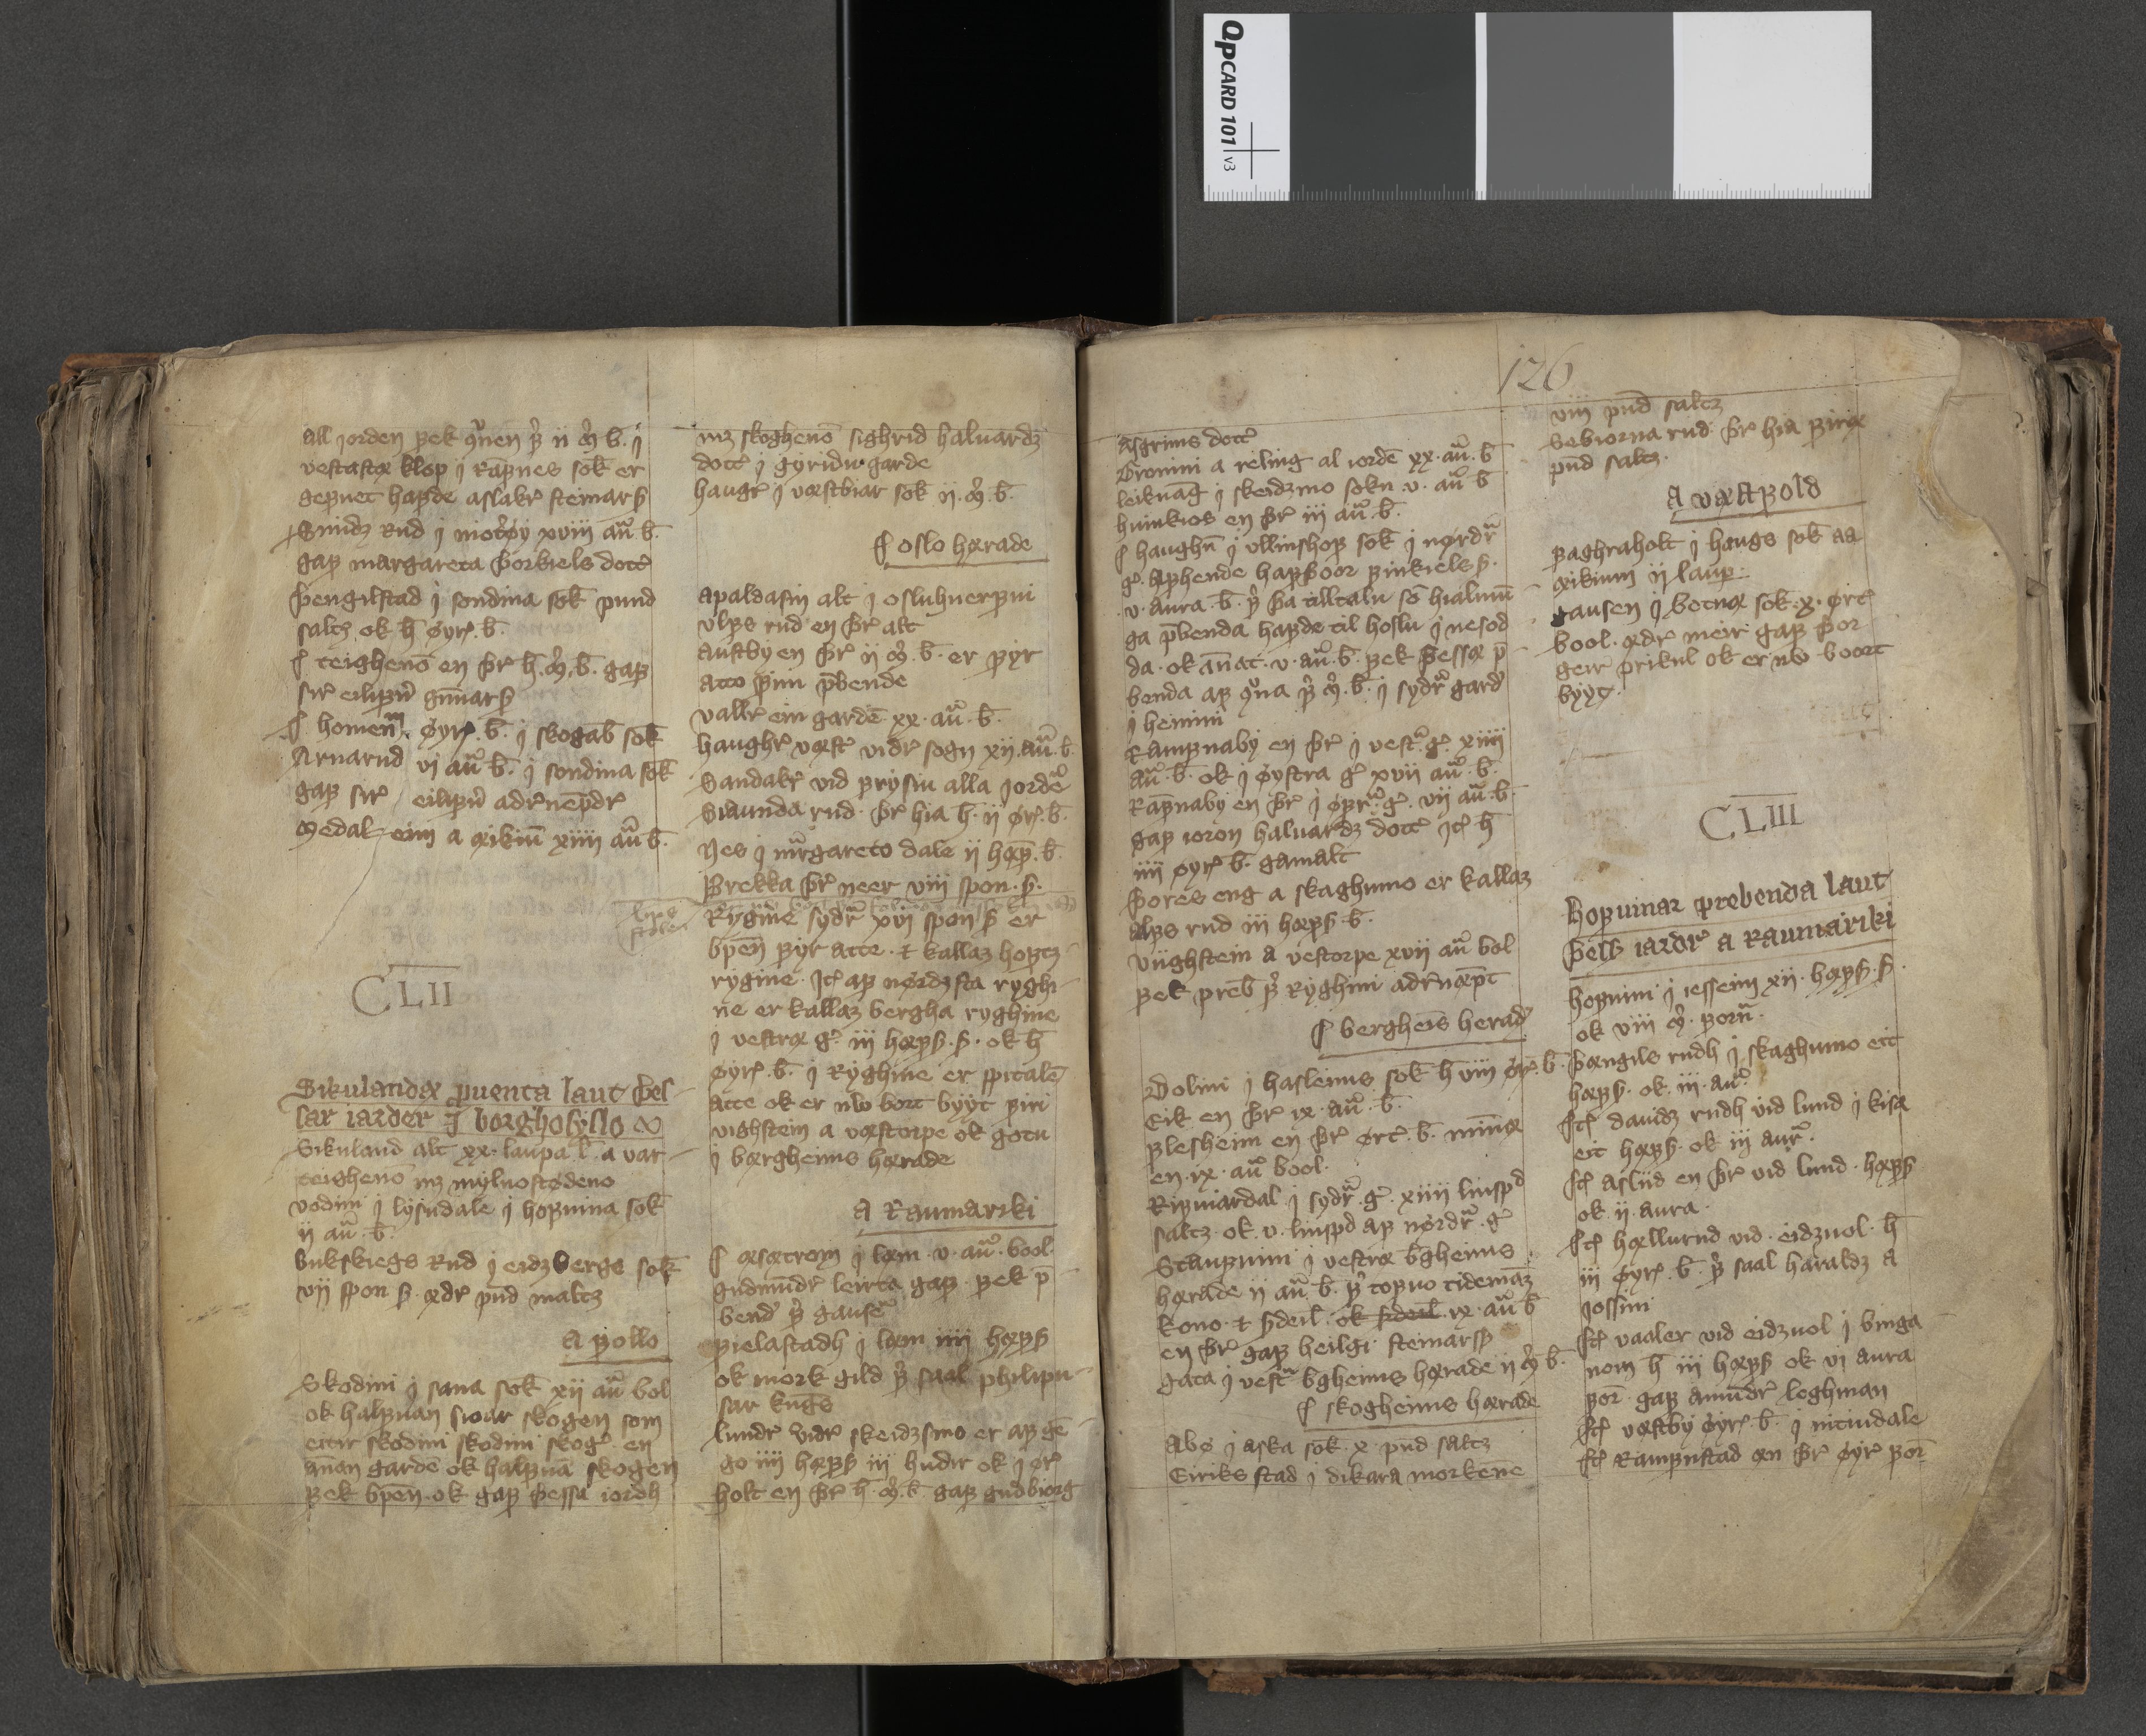 QPCARD 101 v3
126
All jorden fek konen fir ii mr b. j
vestastæ klop j Rafnes sok er
gefuet hafde aslakr steinars
Smidz Rud j niotøy xviii aur b.
gaf margareta þorkiels dottr
þengilstad j sondina sok pund
saltz ok h øyr. b.
J teigheno en þr h. mr. b. gaf
sir eilifur gunnars
J homen øyr. b. j skogab sok
Arnarud vj aur b. j sondina sok
gaf sir eilifur adrnefdr
Medalheim a æikiu xiiii aur b.
CLII
Sikulandæ puenta laut þes-
sar iarder J borghosyslo
Sikuland alt xx. laupa l. a var-
teigheno mz mylnostødeno
vodini j lysudale j hofuina sok
ii aur. b.
bukkiegs Rud j eidzberge sok
vij spon s. ædr pund maltz
A follo
Skodini j sana sok xij aur bol
ok halfuan sioar skogen som
eittir skodini skodini skogr en
annan garden ok halfuan skogen
fek bpen. ok gaf þessa iordh
mz skogheno sighrid haluardz
dottr j gyridu garde
haugr j væstbiar sok ij. mr. b.
J oslo hærade
Apaldasin alt j osluhuerfui
vlfs rud en þr alt
Austby en þr ij mr. b. er fyr
atto fim pbende
vallr ein garden xx. aur. b.
haughr væstr vidr sogn xij. aur. b
Sandakr vid frysiu alla jorder
Siaunda rud. þr hia h. ij ør. b.
Nes j margareto dale ij hæf. b.
Brekka þr neer viii spon. s.
Rygine sydr xvj spon s er
bpen fyr atte. & kallaz hoftz
rygine. Jt af nordzsta ryghi-
ne er kallaz bergha ryghine
j vestræ g. iij hæfs. s. ok h
øyr. b. j Ryghine er spitale
atte ok er nw bort byyt firi
vighstein a væstorpe ok gotu
j bærgheims hærade
A Raumariki
J æsætrom j læm. v. aur. bool.
gudmundr leirta gaf. fek p-
bend fir gauser
fielastadh j læm iiii hæfs
ok mork gild fir saal philipu-
sar kungs
lundr vidr skeidzsmo er af gē-
go iiii hæfs iij hudir ok j ør
holt en þr h. mr. b. gaf gudbiorg
Asgrims dottr
Tronini a reling al iorden xx. aur. b
leikuang j skeidzmo sokn v. aur b
huinkios en þr iii aur. b.
J haughu j ullinshof sok j nørdr
g. Afhende haffþor finkiels s.
v. aura. b. fir þa tilltalu som hialmu-
ga pbenda hafde til hoslu j nesod-
da. ok annat. v. aur. b. fek þessæ p-
benda af kona fir mr. b. j sydr gard
j hemini
Rampnaby en þr j vestr. g. xiiij
aur. b. ok j øystra g xvij aur. b.
Rafnaby en þr j øfr. g. vij aur. b.
gaf ioron haluardz dottr jt h
iiij øyr b. gamalt
þores eng a skaghumo er kallaz
alfs rud iij hæfs. b.
viighstein a vestorpe xvii aur bol
fek preb fir Ryghini adrnæft
J bergheis herad
Dolini j hasleims sok h viii ør. b.
Eik en þr ix. aur. b.
flesheim en þr ørt. b. minnæ
en. ix. aur bool.
Rifuiardal j sydr. g. xiiij liispd
saltz. ok. v. liispd af nordr. g
Staupuini j vestræ bgheims
hærade ij aur. b. fir tofuo tidemanz
kono. & sdeil. ok sdeil. ix. aur b
en þr gaf heilgi steinars
gata j vestr bgheims hærade ij mr b.
J skogheims hærade
Abø j aska sok. x pund saltz
Eiriks stad j dikara morkene
viii pund saltz
bebiorna rud þr hia firæ
pund saltz.
A væstfold
faghraholt j haugs sok aa
æikium ij laup.
rausen j botnæ sok. x. ørt
bool. ædr meir gaf þor
geir prikul ok er nw boort
byyt.
CLIII
Hofuinar prebenda laut
þess iardr a Raumariki
hofuini j iesseim xii. hæfs. s
ok viii mr. forn.
þængils rudh j skaghumo eit
hæfs. ok. iii. aur.
Jt dauidz rudh vid lund j kisæ
eit hæfs. ok iij aur.
Jt asliid en þr vid lund. hæfs
ok ij. aura.
Jt hællurud vid. eidzuol. h
iij øyr. b. fir saal haraldz a
jossini
Jt vaaler vid eidzuol j binga
nom h iij hæfs ok vi aura
for. gaf amundr loghman
Jt væstby øyr. b. j nitiudale
Jt Rampnstad æn þr øyr for